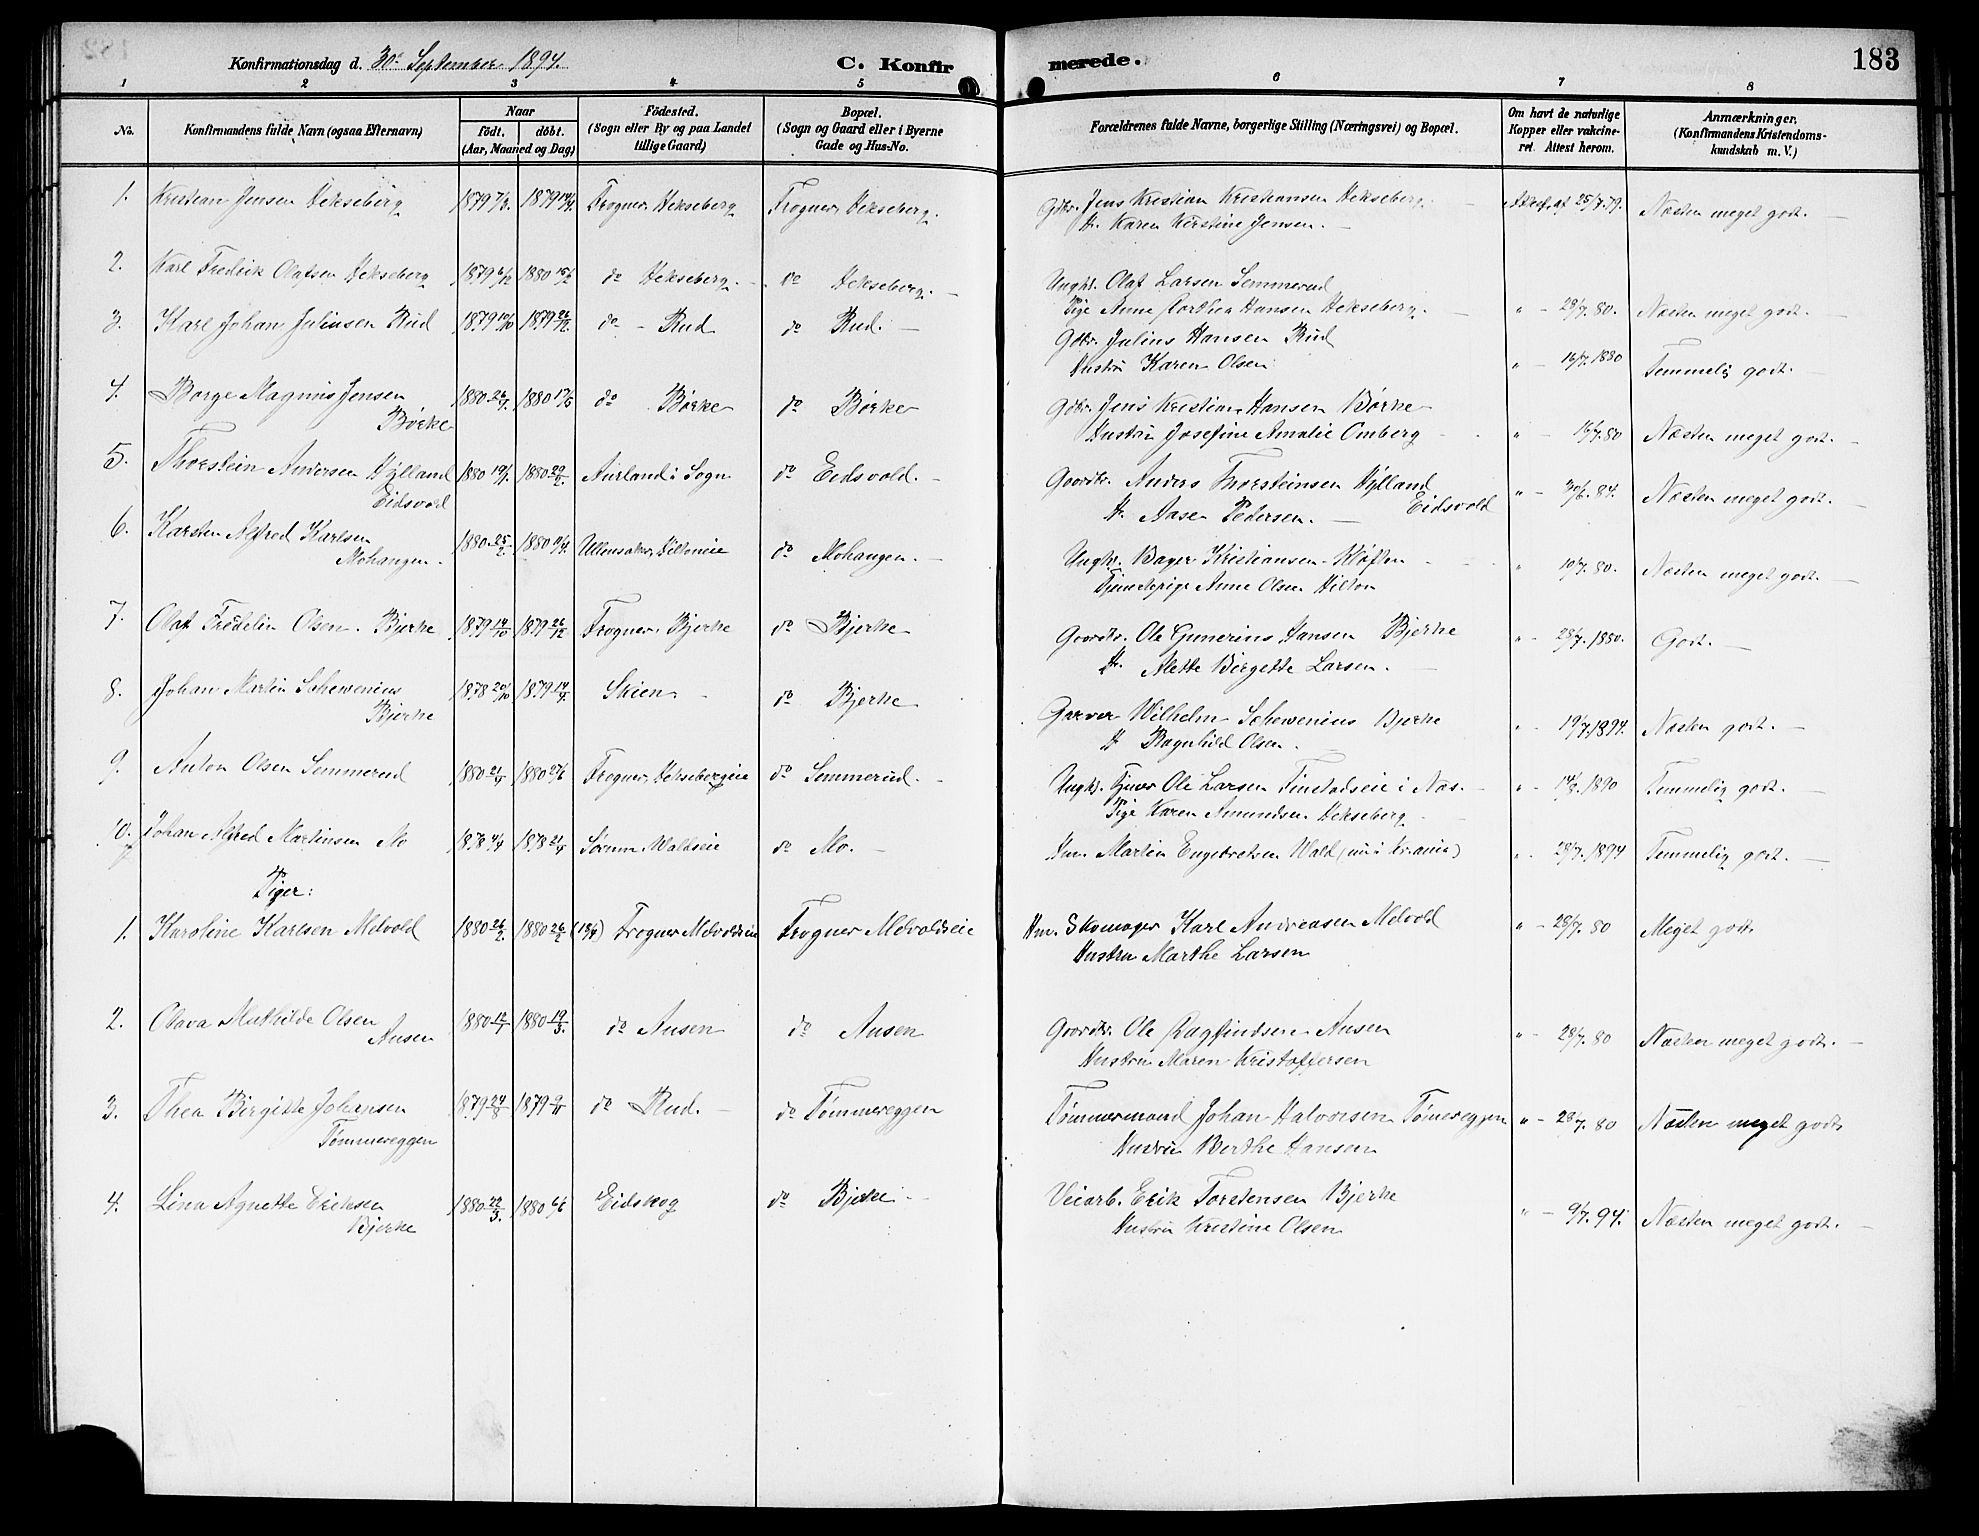 Konfirmationsdag d. 30. September 1894.
C. Konfirmerede.
183
1 2 3 4 5 6 7 8
No.
Konfirmandens fulde Navn (ogsaa Efternavn)
Naar
födt. döbt.
(Aar, Maaned og Dag)
Födested.
(Sogn eller By og paa Landet
tillige Gaard)
Bopæl.
(Sogn og Gaard eller i Byerne
Gade og Hus-No.
Forældrenes fulde Navne, borgerlige Stilling (Næringsvei) og Bopæl.
Om havt de naturlige
Kopper eller vakcine-
ret. Attest herom.
Anmærkninger.
(Konfirmandens Kristendoms-
kundskab m. V.)
1. Kristian Jensen Hekseberg 1879 7/3. 1879 14/4. Frogner, Hekseberg Frogner, Hekseberg. Gdbr. Jens Kristian Kristiansen Hekseberg. Attest af 25/7.79. Næsten meget godt.
H. Karen Kirstine Jensen.
2. Karl Fredrik Olafsen Hekseberg 1879 6/12 1880 15/2 do Hekseberg. do Hekseberg. Ungk. Olaf Larsen Semmerud
Pige Anne Dorthea Hansen Hekseberg. " - 28/7.80. Næsten meget godt.
3. Karl Johan Juliusen Rud 1879 10/10 1879 26/12. do Rud do Rud. Gdbr. Julius Hansen Rud
Hustru Karen Olsen " - 16/7.1880 Temmelig godt.
4. Borge Magnus Jensen 1880 26/1. 1880 17/5 do Børke do Børke Gdbr. Jens Kristian Hansen Børke
Børke Hustru Josefine Amalie Omberg " - 16/7.80 Næsten meget godt.
5. Thorstein Andersen Hylland 1880 19/1 1880 29/2. Aurland i Sogn do Eidsvold. Gaardbr. Anders Thorsteinsen Hylland
Eidsvold H. Aase Pedersen. Eidsvold " - 30/6.84. Næsten meget godt.
6. Karsten Alfred Karlsen 1880 25/2. 1880 11/4. Ullensaker, Hiltoneie do Mohangen. Ungk. Bager Kristiansen Kløften
Mohangen. Tjenestepige Anne Olsen Hilton " 10/7.80. Næsten meget godt.
7. Olaf Fredelin Olsen Bjerke 1879 14/10 1879 26/12 Frogner Bjerke do Bjerke Gaardbr. Ole Gunerius Hansen Bjerke " - 28/7.1880. Godt.
H. Alette Birgette Larsen.
8. Johan Martin Schewenius 1878 20/10 1879 14/4. Skien do Bjerke Garver Wilhelm Schewenius Bjerke " - 19/7.1894. Næsten godt.
Bjerke H. Ragnhild Olsen.
9. Anton Olsen Semmerud 1880 21/4 1880 27/6 Frogner, Heksebergeie do Semmerud. Ungk. Tjener Ole Larsen Finstadseie i Næs. " - 14/8.1890 Temmelig godt.
Pige Karen Amundsen Hekseberg
10. Johan Alfred Martinsen Mo 1878 4/4 1878 21/4 Sørum Waldseie do Mo. Hm. Martin Engebretsen Wald (nu i Krania) " - 28/7.1894 Temmelig godt.
Piger:
1. Karoline Karlsen Melvold 1880 26/2. 1880 26/2 (18/4) Frogner Melvoldseie Frogner Melvoldseie Hm. Skomager Karl Andreasen Melvold " - 28/7.80 Meget godt.
Hustru Marthe Larsen
2. Olava Mathilde Olsen 1880 12/1 1880 19/3. do Ausen do Ausen Gaardbr. Ole Ragfindsen Ausen " - 28/7.80 Næsten meget godt.
Ausen Hustru Maren Kristoffersen
3. Thea Birgitte Johansen 1879 24/8 1879 9/11 do Rud. do Tømmereggen Tømmermand Johan Halvorsen Tømereggen " - 28/7.80 Næsten meget godt.
Tømmereggen Hustru Berthe Hansen
4. Lina Agnette Eriksen 1880 22/3. 1880 6/6 Eidskog do Bjerke Veiarb. Erik Torstensen Bjerke " - 9/7.94. Næsten meget godt.
Bjerke Hustru Kristine Olsen